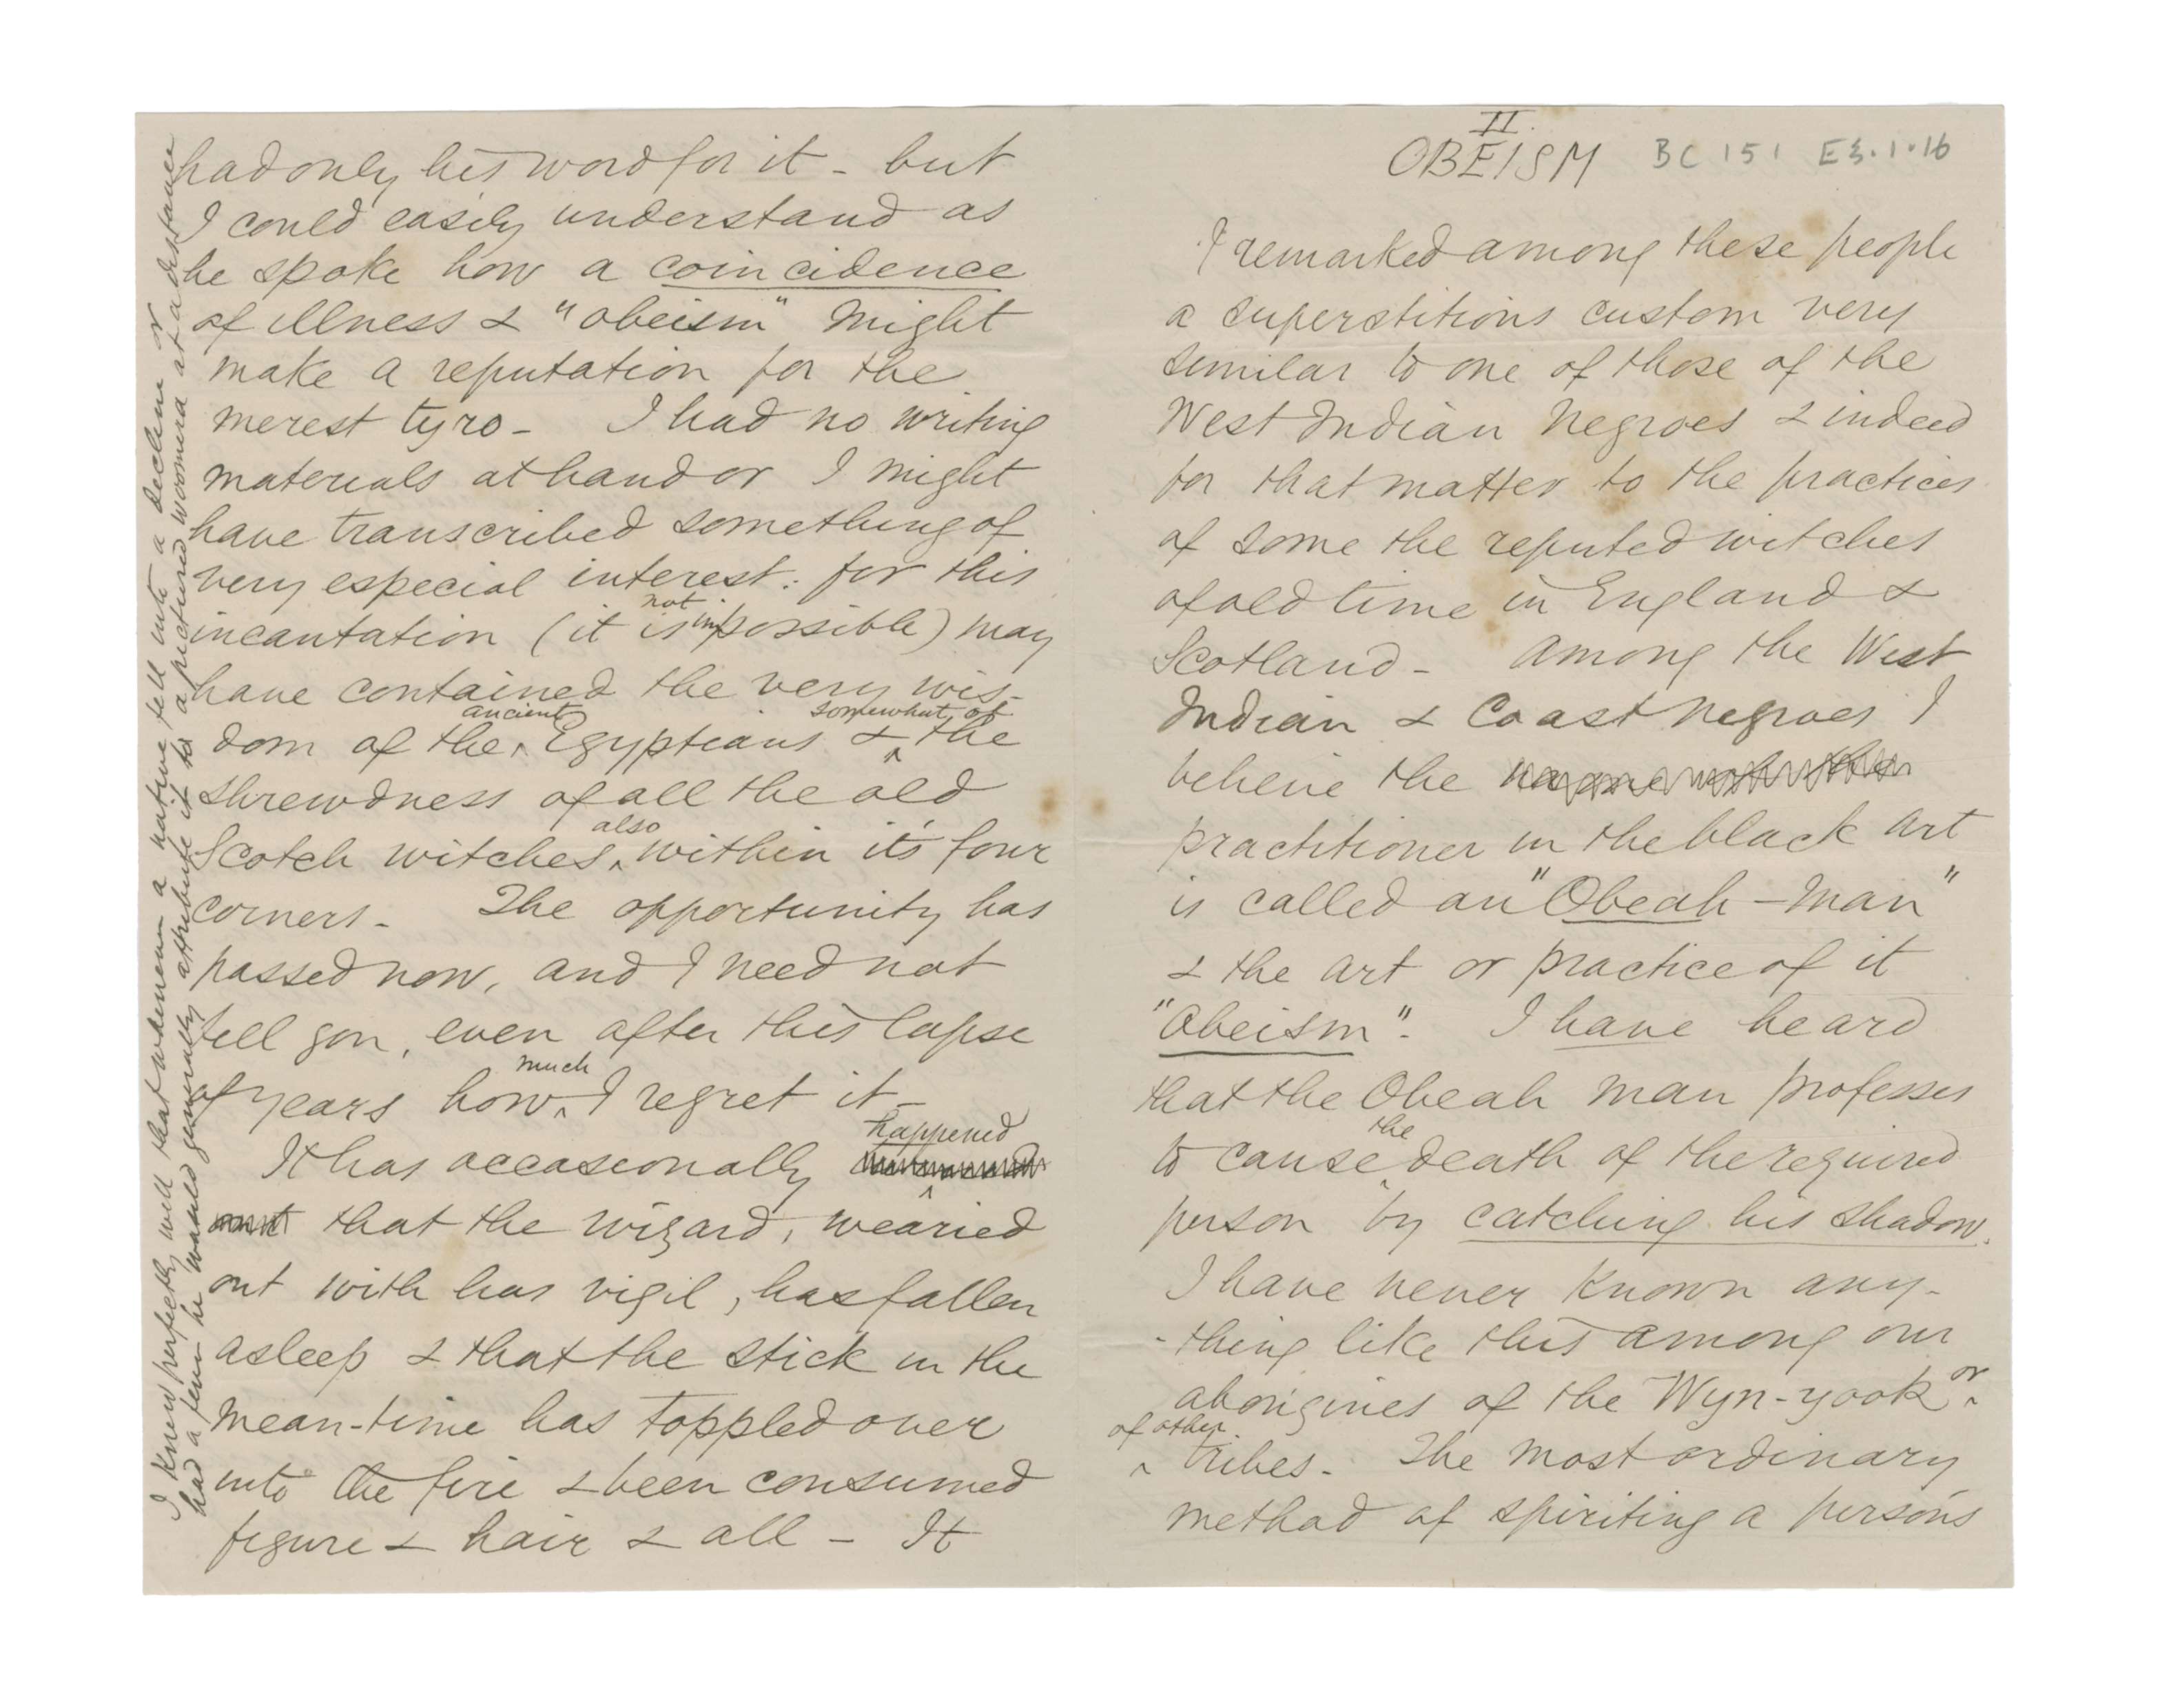 had only his word for it - but
I could easily understand as
he spoke how a coincidence
of illness & "obeism" might
make a reputation for the
merest tyro - I had no writing
materials at hand or I might
have transcribed something of
very especial interest: for this
incantation (it is not impossible) may
have contained the very wis-
dom of the ancient Egyptians & somewhat of the
shrewdness of all the old
Scotch witches, also within it's four
corners - The opportunity has
passed now, and I need not
tell you, even after this lapse
of years how much I regret it -
It has occasionally happened
that the wizard, wearied
out with his vigil, has fallen
asleep & that the stick in the
mean-time has toppled over
into the fire & been consumed
figure & hair & all - It
I knew perfectly well that whenever a native fell into a decline or
had a fever he would generally attribute it to a pictured woomera at a distance
II.
OBEISM BC 151 E3.1.16
I remarked among these people
a superstitious custom very
similar to one of those of the
West Indian Negroes & indeed
for that matter to the practices
of some the reputed witches
of old time in England &
Scotland - Among the West
Indian & Coast negroes I
believe the
practitioner in the black art
is called an "Obeah-Man"
& the art or practice of it
"Obeism". I have heard
that the Obeah man professes
to cause the death of the required
person by catching his shadow.
I have never known any-
-thing like this among our
aborigines of the Wyn-yook or
of other tribes. The most ordinary
method of spiriting a person's